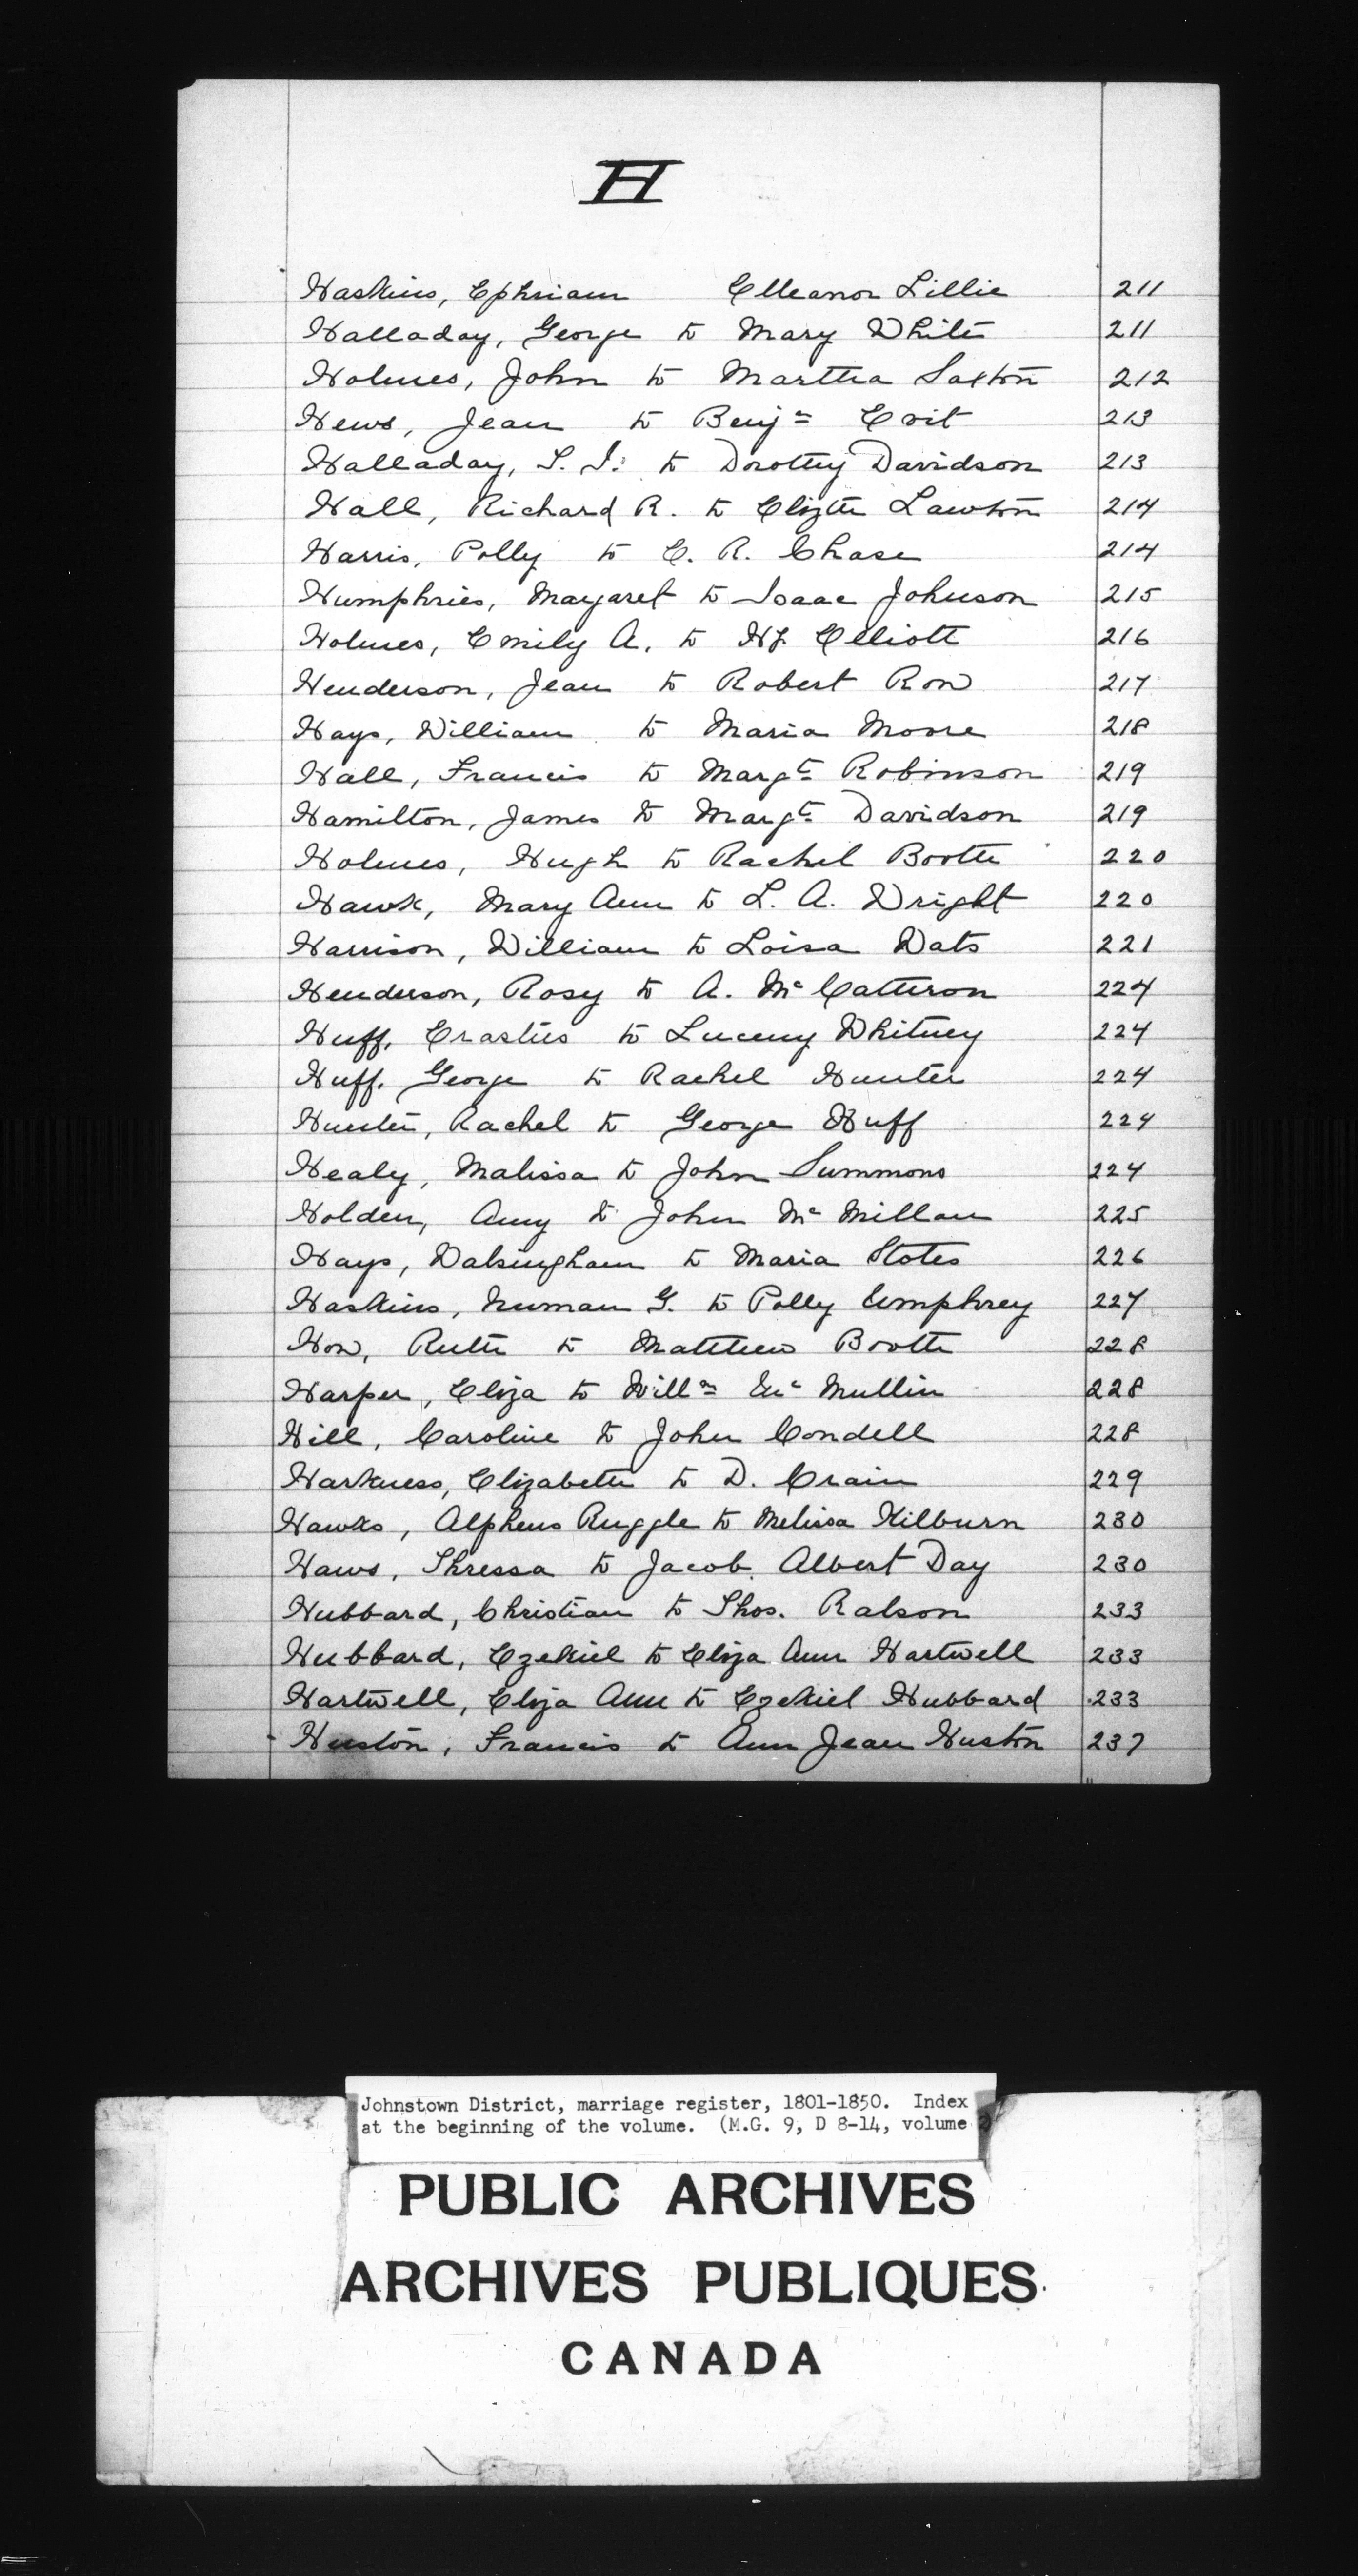 H
Haskins, Ephriam Elleanor Lillie 211
Halladay, George to Mary White 211
Holmes, John to Martha Saxton 212
Hews, Jean to Benjn Evit 213
Halladay, to Dorothy Davidson 213
Hall, Richard R. to Elizth Lawton 214
Harris, Polly to E. R. Chase 214
Humphries, Margaret to Isaac Johnson 215
Holmes, Emily A. to Elliott 216
Henderson, Jean to Robert Row 217
Hays, William to Maria Moore 218
Hall, Francis to Margt Robinson 219
Hamilton, James to Margt Davidson 219
Holmes, Hugh to Rachel Booth 220
Hawk, Mary Ann to L. A. Wright 220
Harrison, William to Loisa Wats 221
Henderson, Rosy to A. Mc Catteron 224
Huff, Erastus to Luceny Whitney 224
Huff, George to Rachel Hunter 224
Hunter, Rachel to George Huff 224
Healy, Malissa to John Summons 224
Holden, Amy to John Mc Millan 225
Hays, Walsingham to Maria Stotes 226
Haskins, Numan G. to Polly Umphrey 227
How, Ruth to Matthew Booth 228
Harper, Eliza to Willm Mc Mullin 228
Hill, Caroline to John Condell 228
Harkness, Elizabeth to D. Crain 229
Hawks, Alpheus Ruggle to Melissa Kilburn 230
Haws, Thressa to Jacob Albert Day 230
Hubbard, Christian to Thos. Ralson 233
Hubbard, Ezekiel to Eliza Ann Hartwell 233
Hartwell, Eliza Ann to Ezekiel Hubbard 233
Huston, Francis to Ann Jean Huston 237
Johnstown District, marriage register, 1801-1850. Index
at the beginning of the volume. (M.G. 9, D 8-14, volume 2
PUBLIC ARCHIVES
ARCHIVES PUBLIQUES
CANADA